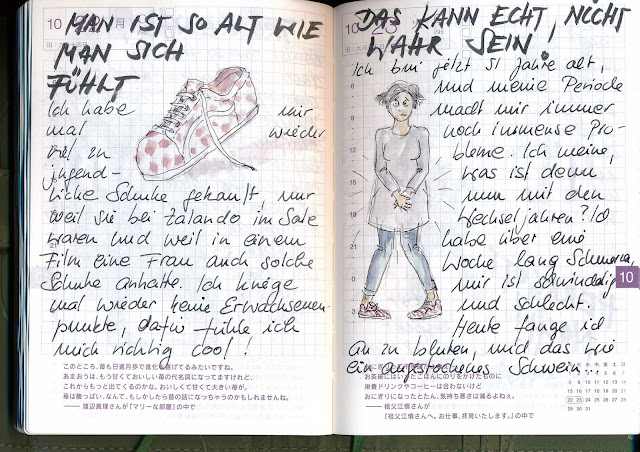 MAN IST SO ALT WIE
MAN SICH
FÜHLT
Ich habe mir
mal wieder
viel zu
jugend-
liche Schuhe gekauft, nur
weil sie bei Zalando im Sale
waren und weil in einem
Film eine Frau auch solche
Schuhe anhatte. Ich kriege
mal wieder keine Erwachsenen-
punkte, dafür fühle ich
mich richtig cool!
このところ、苺も日進月歩で進化を遂げてるみたいですね。
あまおうは、もう甘くておいしい苺の代名詞になってますけれど、
これからもっと出てくるのかな。おいしくて甘くて大きい苺が。
苺は酸っぱい、なんて、もしかしたら昔の話になっちゃうのかもしれませんね。
—— 渡辺真理さんが『マリーな部屋』の中で
DAS KANN ECHT NICHT
WAHR SEIN!
Ich bin jetzt 51 Jahre alt,
und meine Periode
macht mir immer
noch immense Pro-
bleme. Ich meine,
was ist denn
nun mit den
Wechseljahren? Ich
habe über eine
Woche lang Schmerzen,
mir ist schwindelig
und schlecht.
Heute fange ich
an zu bluten, und das wie
ein angestochenes Schwein...
10
お茶碗にはいったごはんにのりをかけたものに
栄養ドリンクやコーヒーは合わないけど
おにぎりになったとたん、気持ち悪さは減るよねぇ。
—— 祖父江慎さんが
『祖父江慎さんへ。お仕事、拝見いたします。』の中で